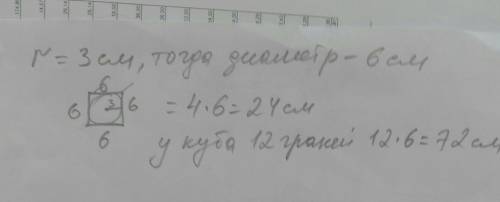 r = 3 см, тогда диаметр - 6 см
6
6 3 6 = 4·6 = 24 см
6
у куба 12 граней 12·6 = 72 см